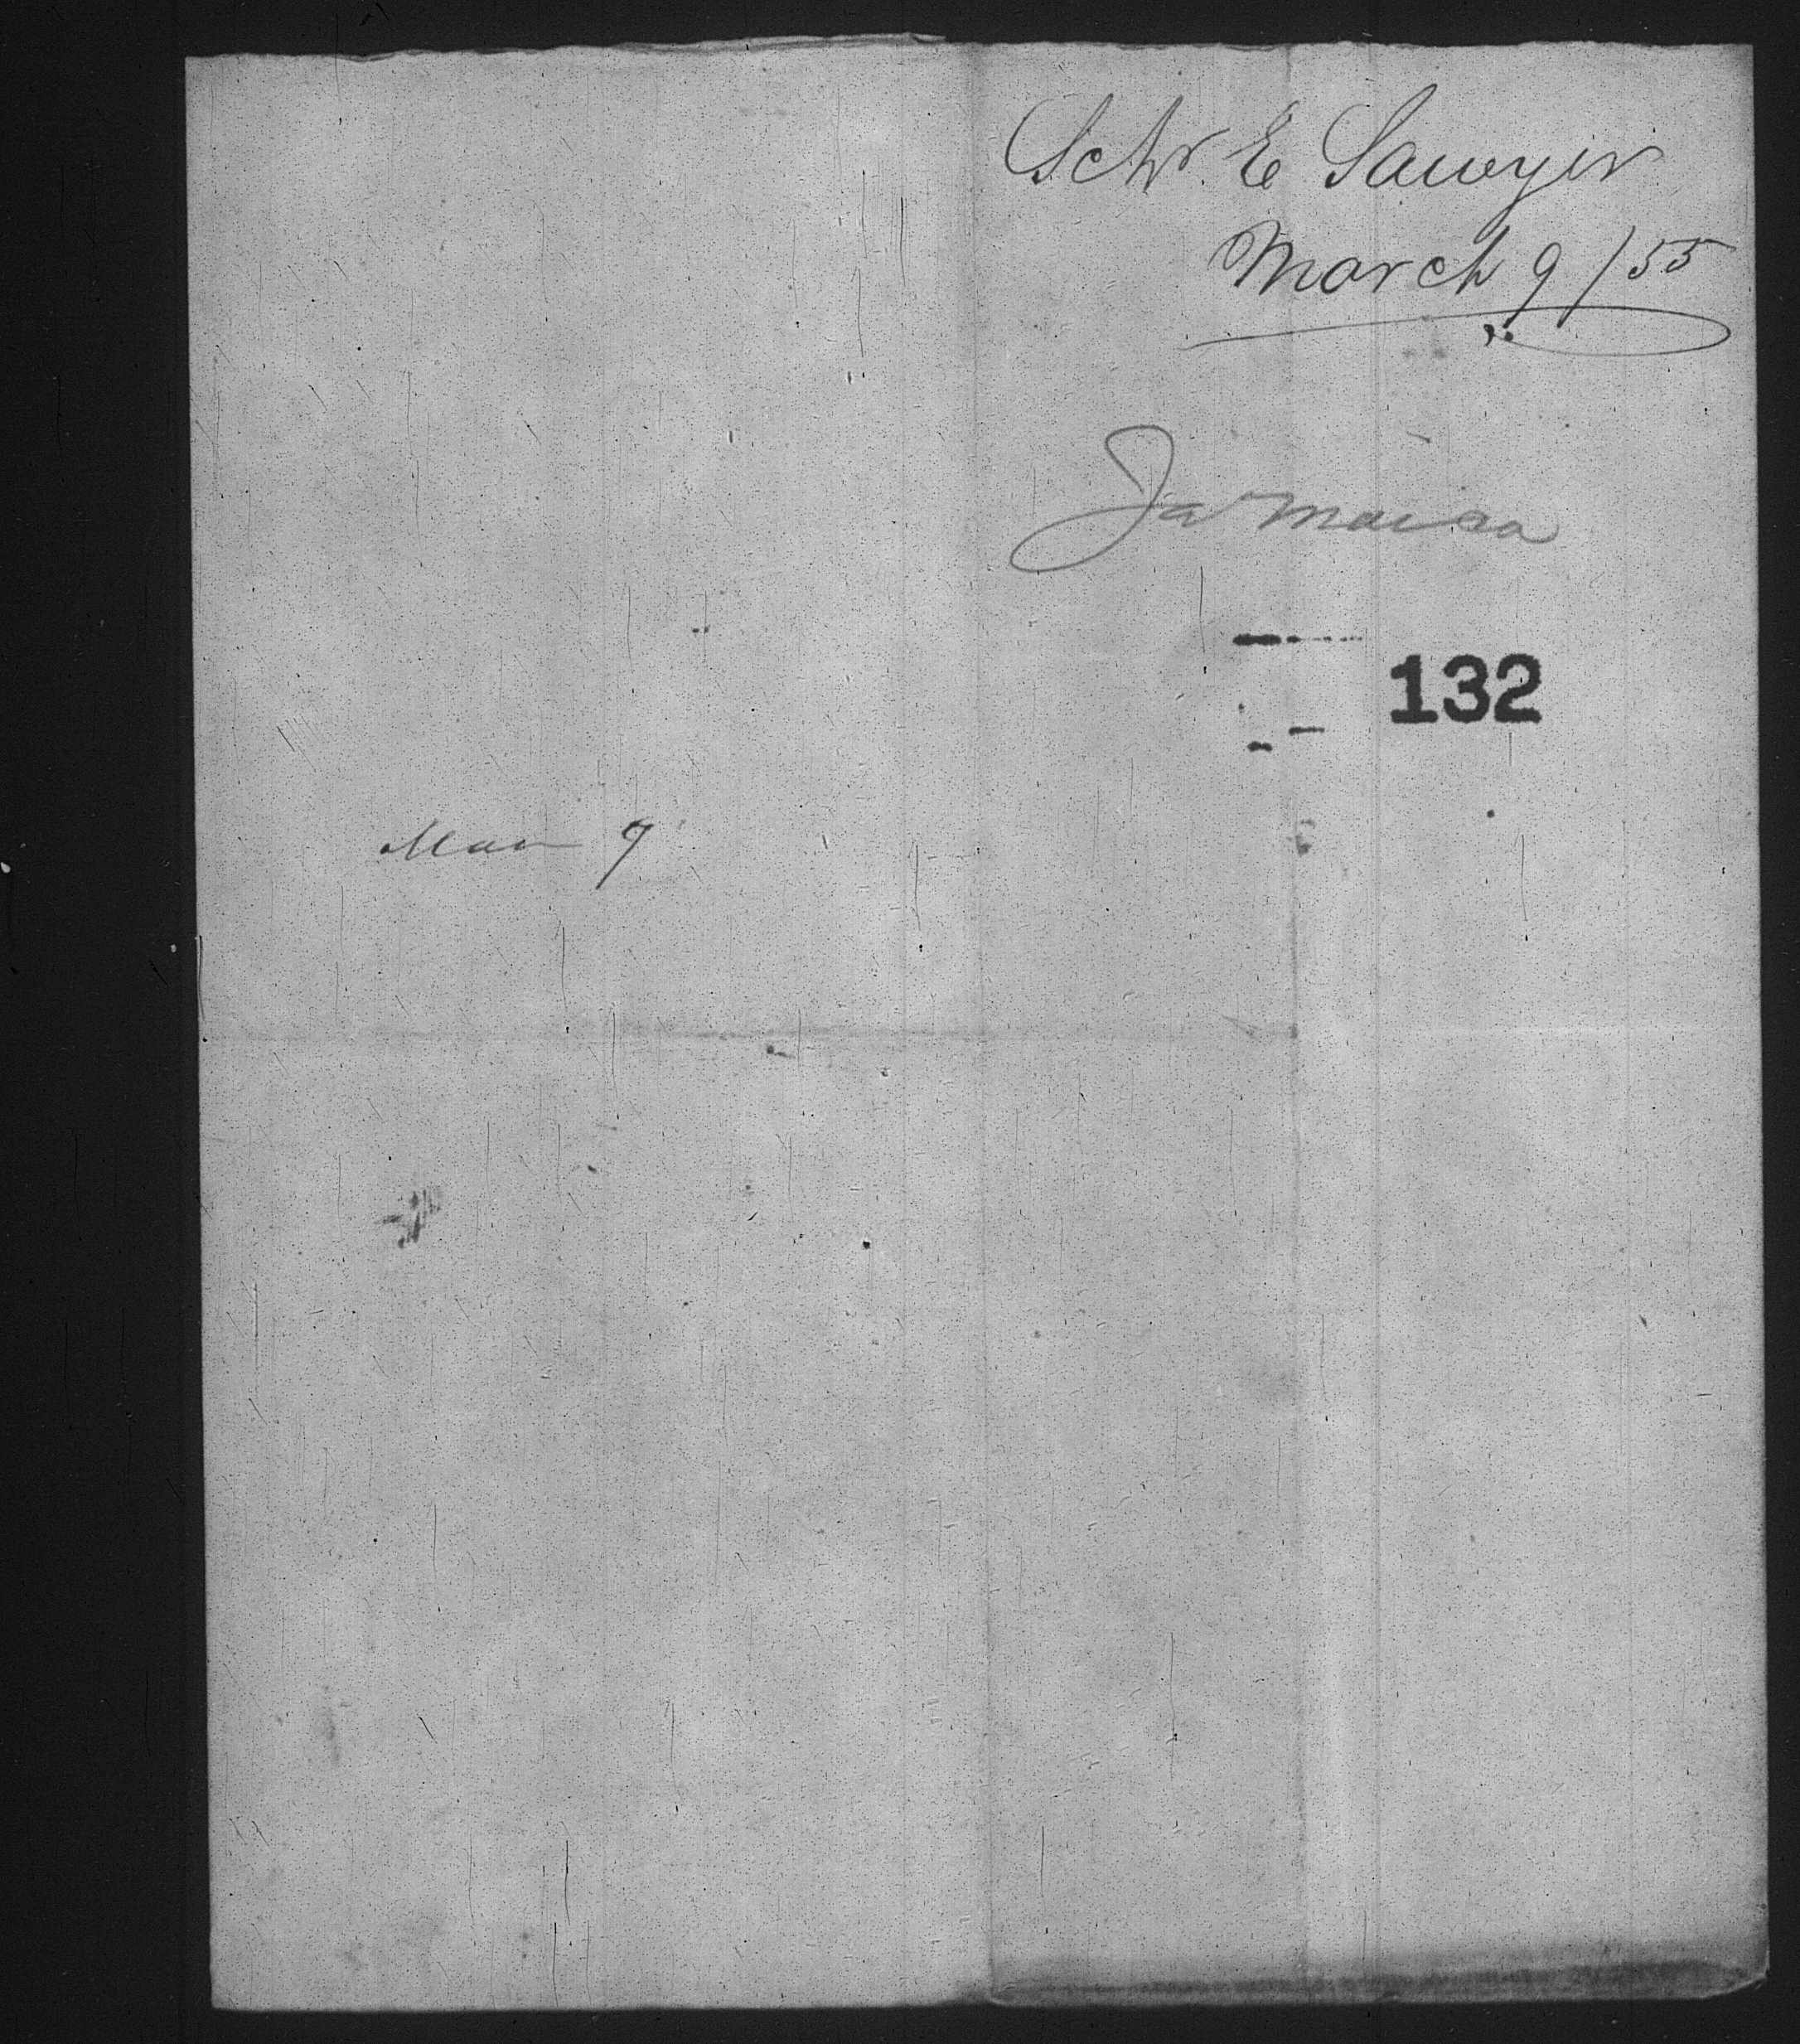 Schr. E Sawyer
March 9/55
Jamaica
132
Mar 9